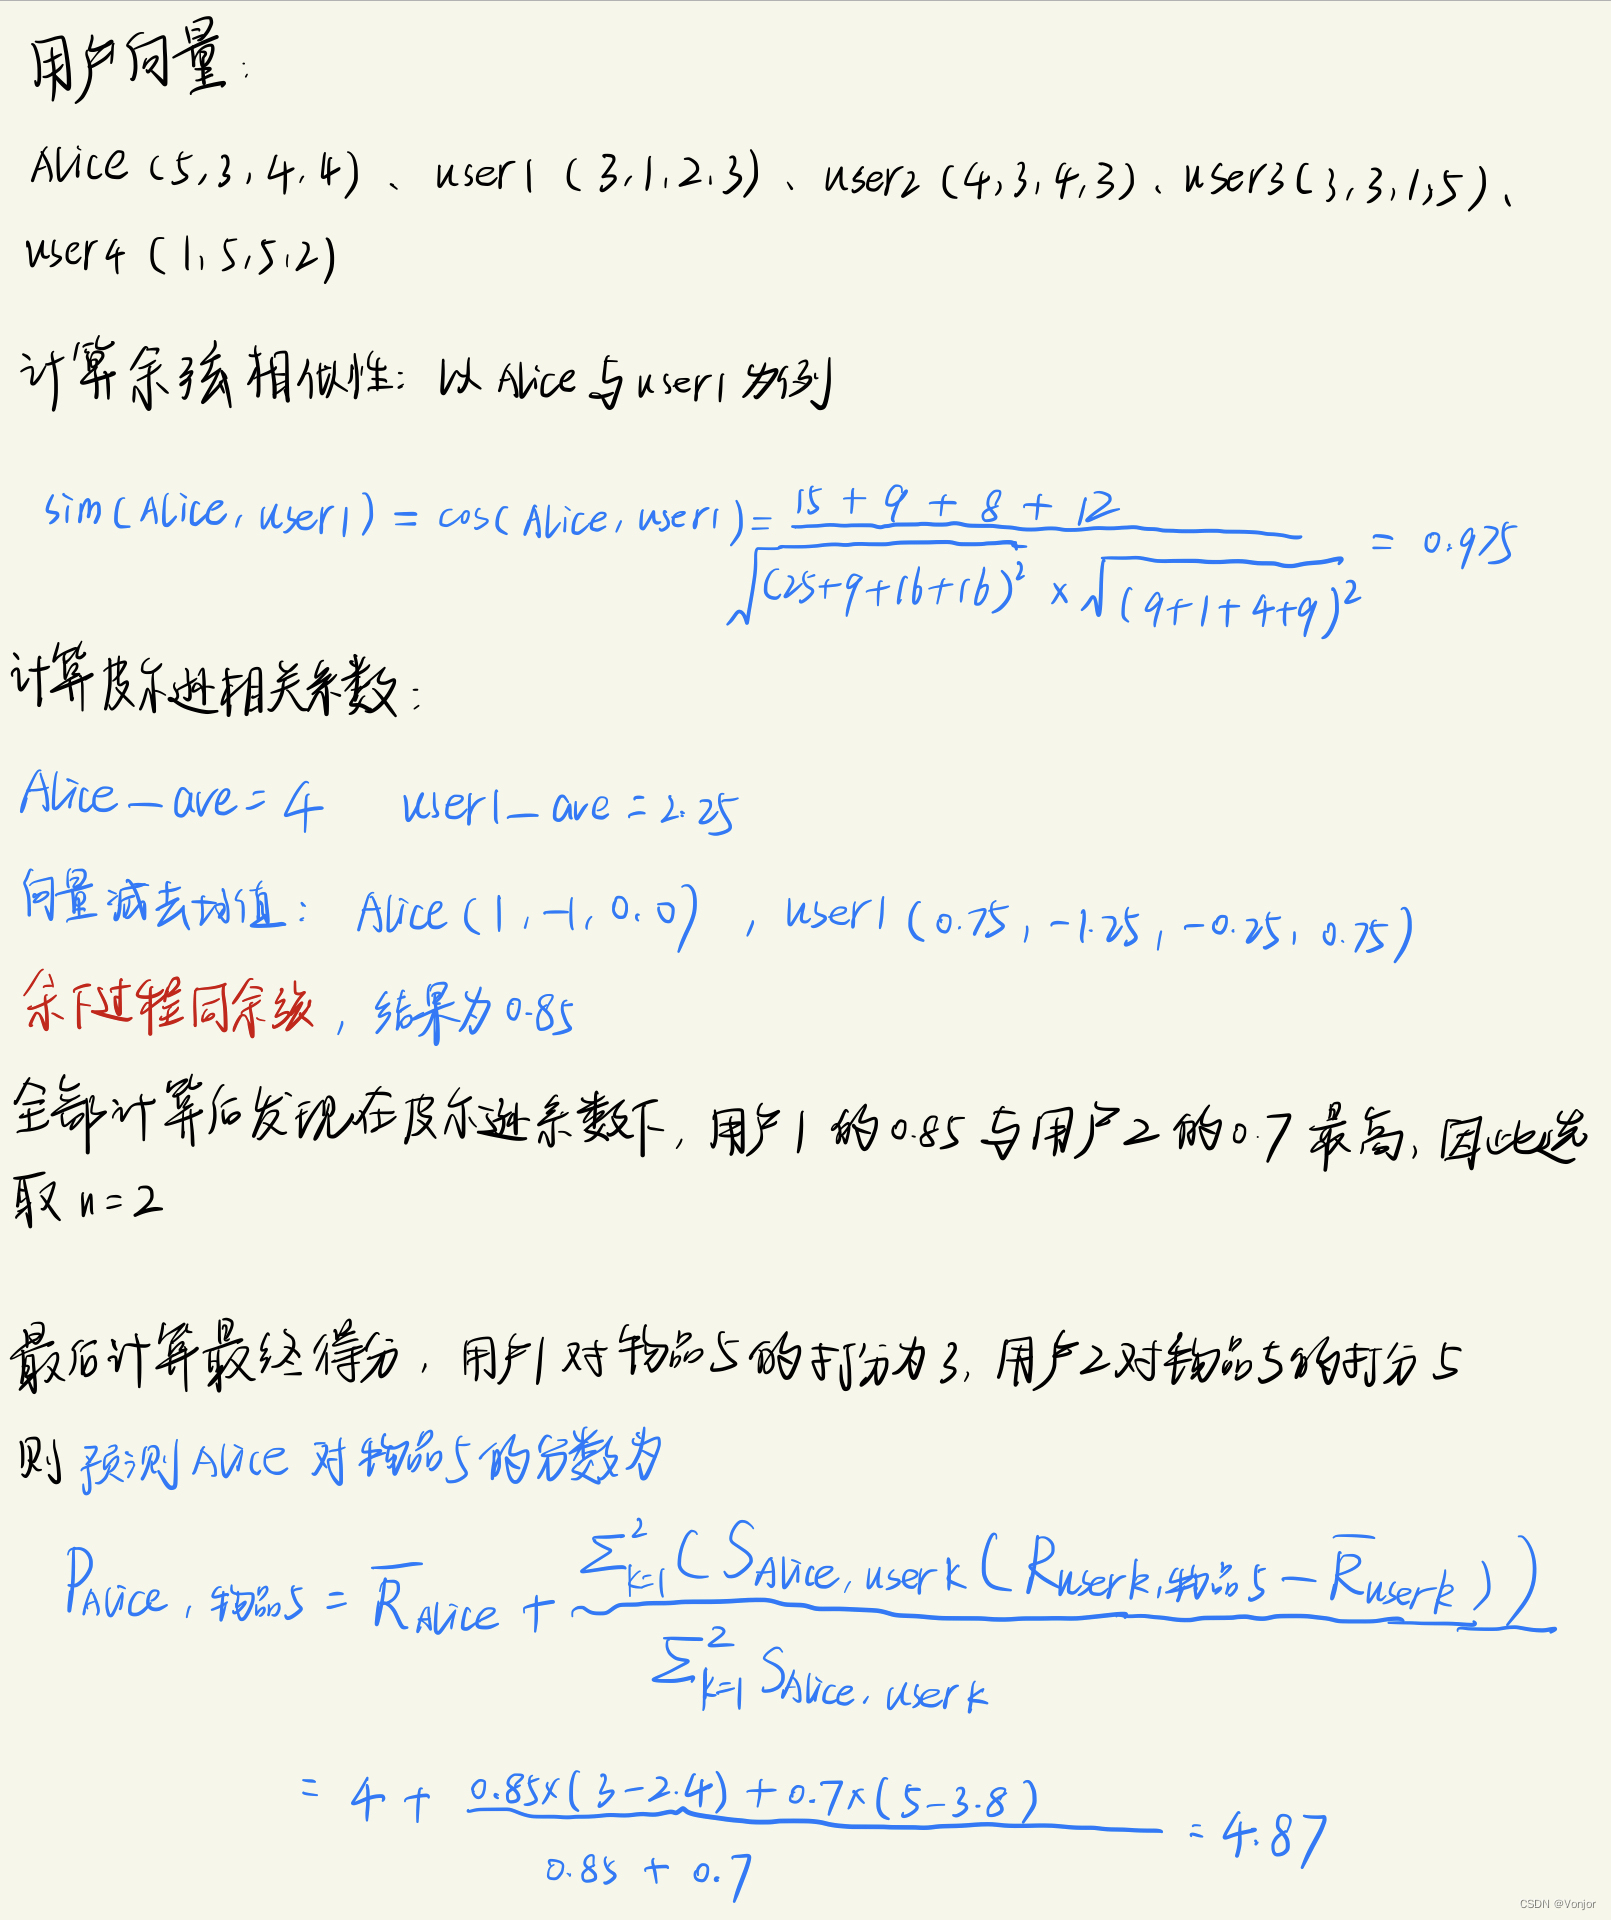 用户向量:
Alice (5,3,4,4)、user1 (3,1,2,3)、user2 (4,3,4,3)、user3(3,3,1,5)、
user4 (1,5,5,2)
计算余弦相似性: 以Alice与user1为例
sim(Alice, user1) = cos(Alice, user1) = \frac{15+9+8+12}{\sqrt{(25+9+16+16)^2} × \sqrt{(9+1+4+9)^2}} = 0.975
计算皮尔逊相关系数:
Alice_ave=4 user1_ave=2.25
向量减去均值: Alice(1,-1,0,0) , user1(0.75,-1.25,-0.25,0.75)
余下过程同余弦, 结果为0.85
全部计算后发现在皮尔逊系数下, 用户1的0.85与用户2的0.7最高, 因此选
取 n=2
最后计算最终得分, 用户1对物品5的打分为3, 用户2对物品5的打分5
则预测Alice对物品5的分数为
P_{Alice,物品5} = \overline{R}_{Alice} + \frac{\sum_{k=1}^{2}(S_{Alice,userk}(R_{userk,物品5} - \overline{R}_{userk}))}{\sum_{k=1}^{2} S_{Alice,userk}}
= 4 + \frac{0.85×(3-2.4)+0.7×(5-3.8)}{0.85+0.7} = 4.87
CSDN @Vonjor